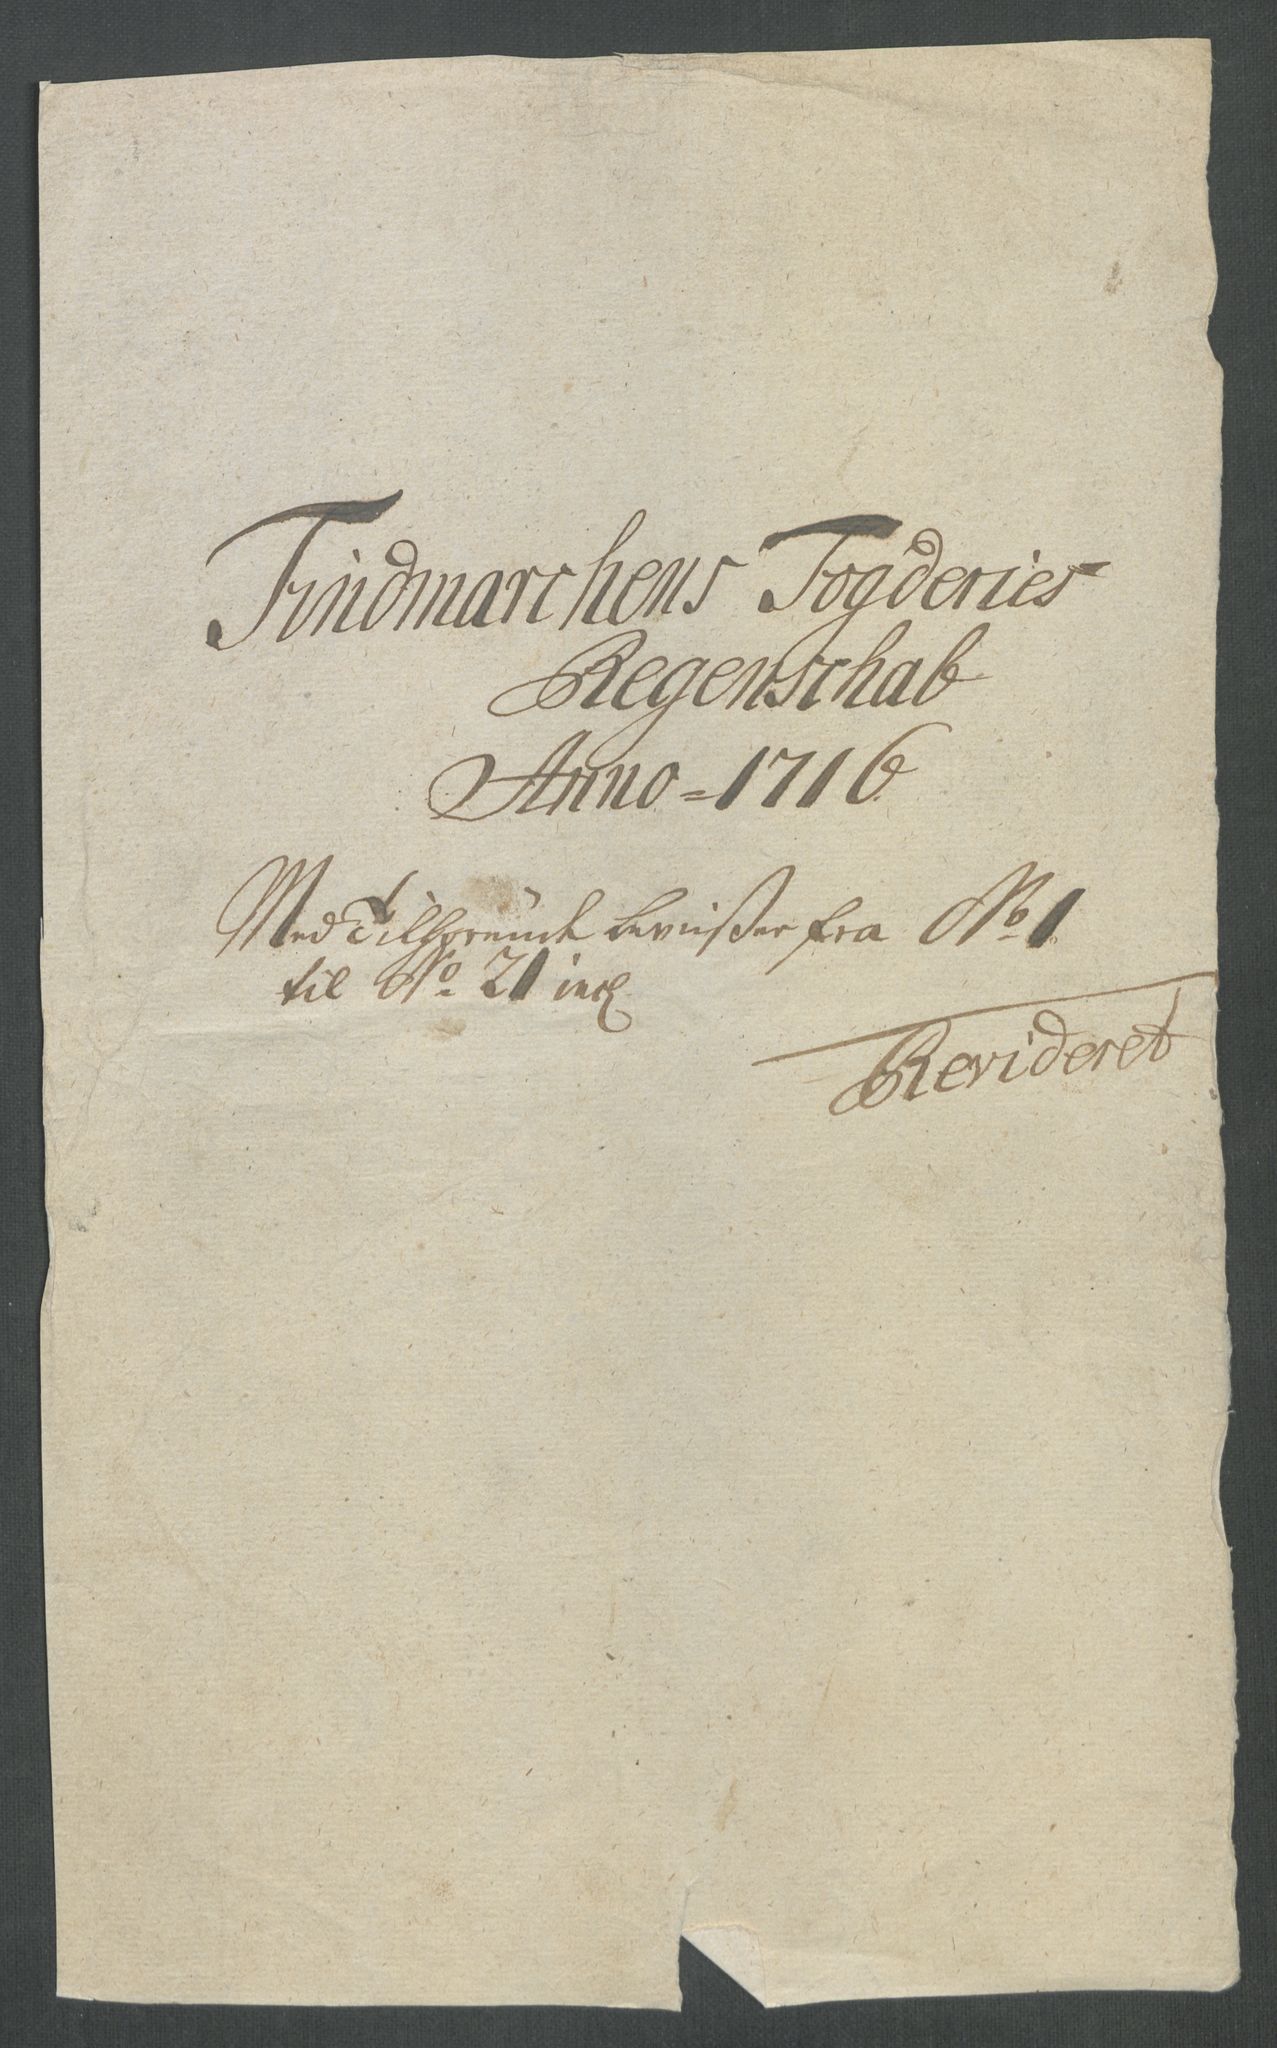 Findmarchens Fogderies
Regenschab
Anno = 1716
Med Tilhørende beviißer fra No. 1
til No. 21 incl
Revideret